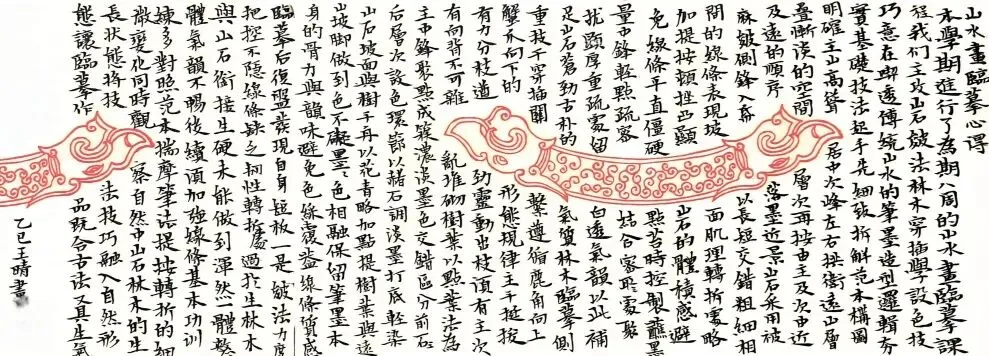 山水畫臨摹心得
本學期進行了為期八周的山水畫臨摹課
程我們主攻山石皴法林木穿插學設色技
巧意在喫透傳統山水的筆墨造型邏輯夯
實基礎技法起手先細緻拆解范本構圖
明確主山高聳居中次峰左右拱衛遠山層
疊漸淡的空間層次再按由主及次由近
及遠的順序落墨近景山石采用被
麻皴側鋒入筆以長短交錯粗細相
間的線條表現坡面肌理轉折處略
加提按頓挫凸顯山石的體積感避
免線條平直僵硬點苔時控製蘸墨
量中鋒輕點疏密結合密處聚
擾顯厚重疏處留白透氣韻以此補
足山石蒼勁古朴的氣質林木臨摹側
重枝干穿插關繫遵循鹿角向上
蟹爪向下的形態規律主干挺拔
有力分枝遒勁靈動出枝須有主次
有向背不可雜亂堆砌樹葉以點葉法為
主中鋒聚點成簇濃淡墨色交錯區分前
后層次設色環節以赭石調淡墨打底輕染
山石坡面與樹干再以花青略加點提樹葉與遠
山坡脚做到色不礙墨、色相融保留筆墨本
身的骨力與韻味避免色彩覆蓋線條質感
臨摹后復盤發現自身短板一是皴法力度
把控不穩線條缺乏韌性轉折處過於生林木
與山石銜接生硬未能做到渾然一體整
體氣韻不暢後續須加強線條基本功訓
練多對照范本揣摩筆法提按轉折的細
微變化同時觀察自然中山石林木的生
長狀態將技法技巧融入自然形
態讓臨摹作品既合古法又具生氣
乙巳王晴書